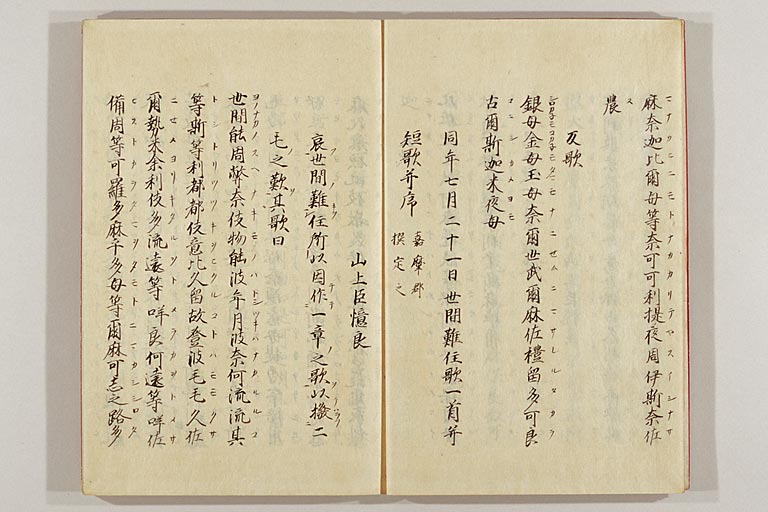 麻奈迦比尓母等奈可可利提夜周伊斯奈佐
農
反歌
銀母金母玉母奈尓世武尓麻佐禮留多可良
古尓斯迦米夜母
同年七月二十一日世間難住歌一首并
短歌并序 嘉摩郡
撰定之
山上臣憶良
哀世間難住所以因作一章之歌以撥二
毛之歎其歌曰
世間能周弊奈伎物能波年月波奈何流流其
等斯等利都都伎意比久留故登波毛毛久佐
尓勢米余利伎多流遠等咩良何遠等咩佐
備周等可羅多麻乎多母等尓麻可志之路多